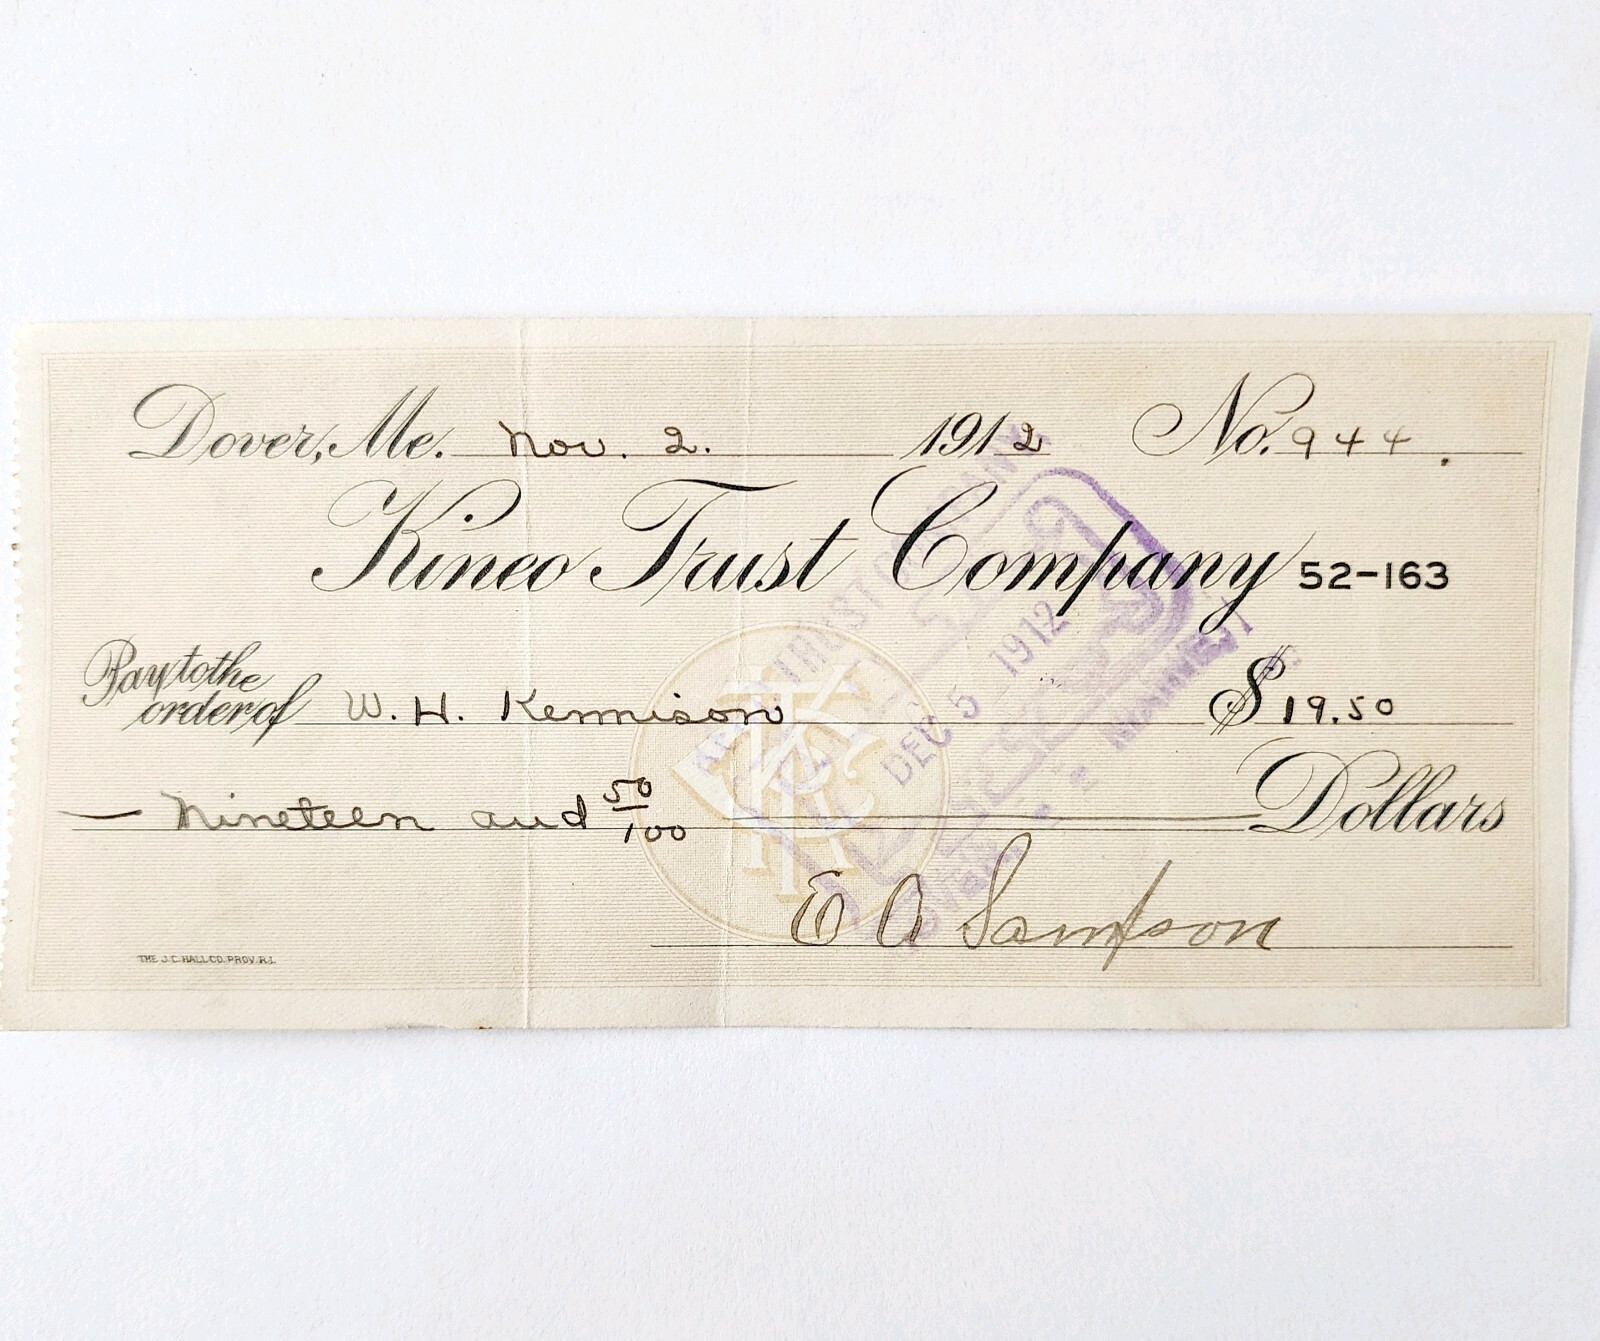 Dover, Me. Nov. 2. 1912 No. 944.
Kineo Trust Company 52-163
Pay to the
order of W. H. Kennison $19.50
— Nineteen and 50/100 Dollars
E A Sampson
THE J.C. HALL CO. PROV. R.I.
KTC
TRUST
DEC 5 1912